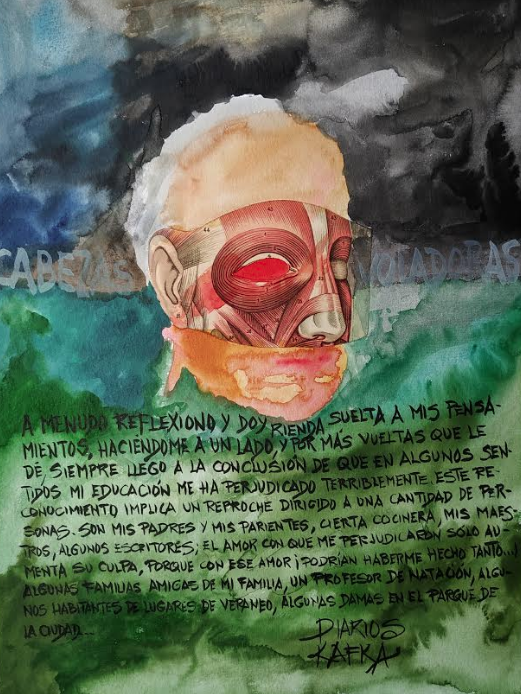 CABEZAS VOLADORAS
A MENUDO REFLEXIONO Y DOY RIENDA SUELTA A MIS PENSA-
MIENTOS, HACIÉNDOME A UN LADO, Y POR MÁS VUELTAS QUE LE
DÉ, SIEMPRE LLEGO A LA CONCLUSIÓN DE QUE EN ALGUNOS SEN-
TIDOS MI EDUCACIÓN ME HA PERJUDICADO TERRIBLEMENTE. ESTE RE-
CONOCIMIENTO IMPLICA UN REPROCHE DIRIGIDO A UNA CANTIDAD DE PER-
SONAS. SON MIS PADRES Y MIS PARIENTES, CIERTA COCINERA, MIS MAES-
TROS, ALGUNOS ESCRITORES; EL AMOR CON QUE ME PERJUDICARON SÓLO AU-
MENTA SU CULPA, PORQUE CON ESE AMOR ¡PODRÍAN HABERME HECHO TANTO...!
ALGUNAS FAMILIAS AMIGAS DE MI FAMILIA, UN PROFESOR DE NATACIÓN, ALGU-
NOS HABITANTES DE LUGARES DE VERANEO, ALGUNAS DAMAS EN EL PARQUE DE
LA CIUDAD...
DIARIOS
KAFKA